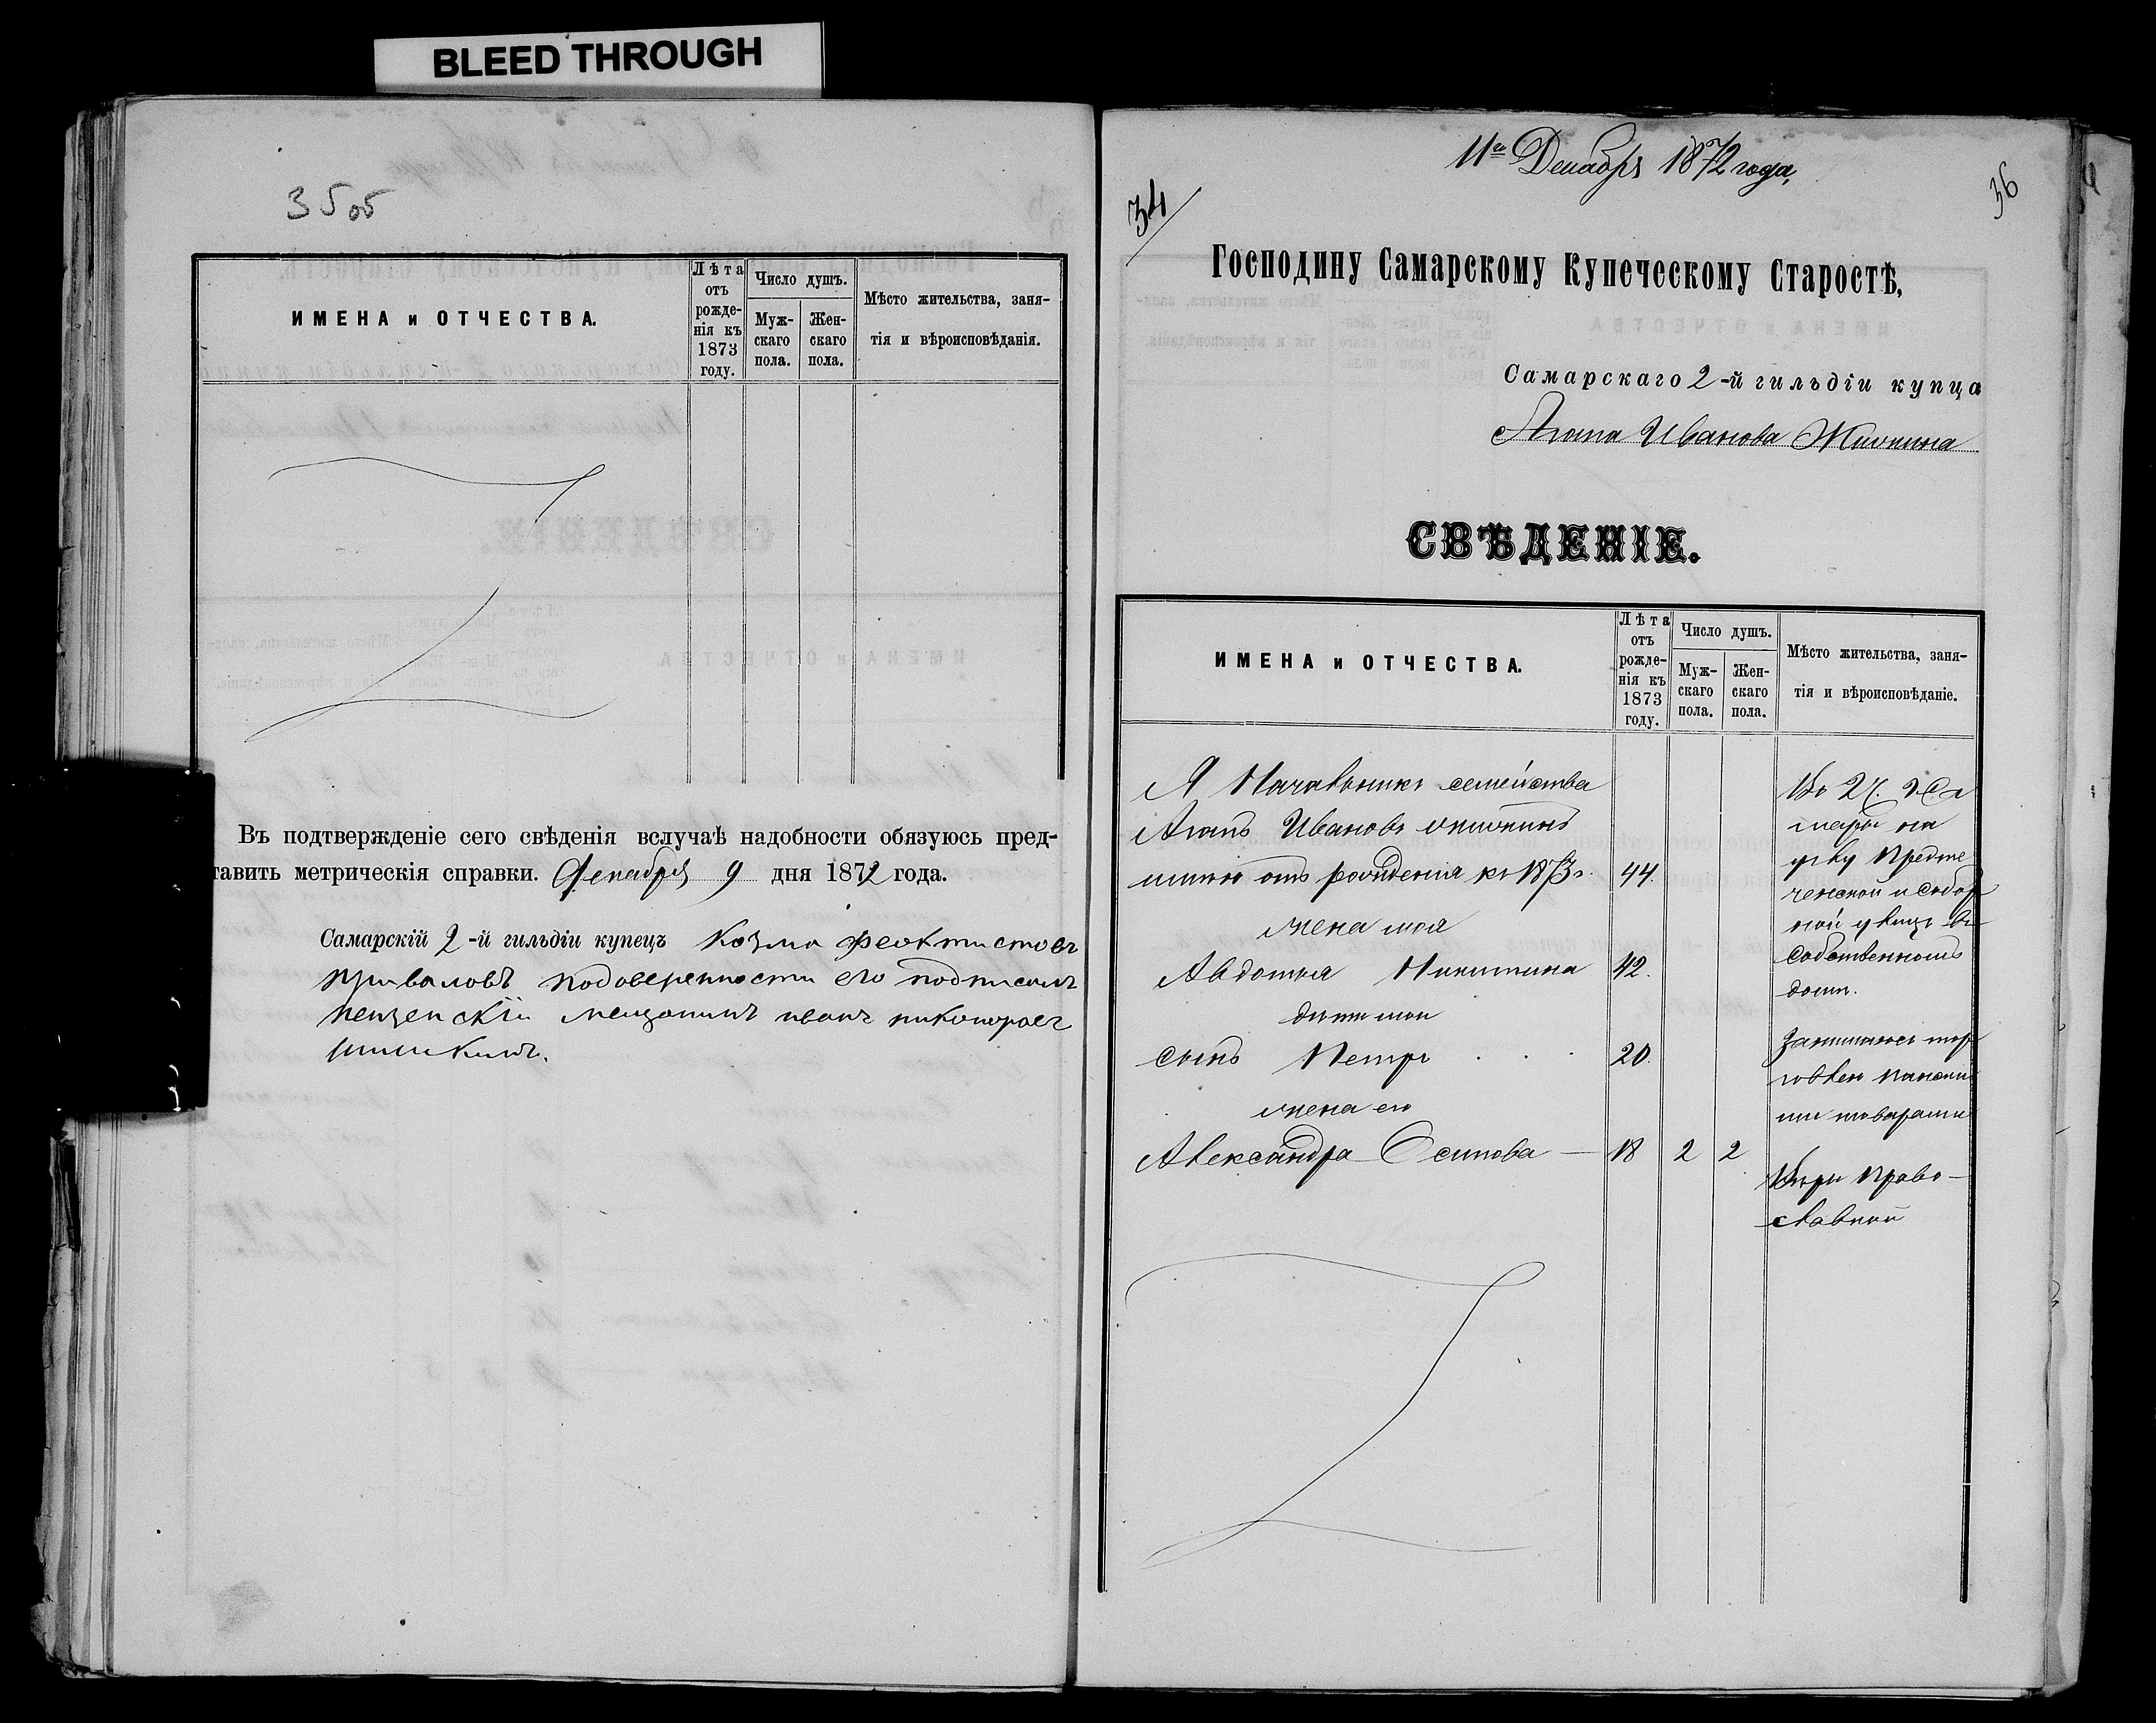 BLEED THROUGH
35об
ИМЕНА и ОТЧЕСТВА.
Лѣта отъ рожденія къ 1873 году.
Число душъ.
Мужскаго пола.
Женскаго пола.
Мѣсто жительства, занятія и вѣроисповѣданія.
Въ подтвержденіе сего свѣденія вслучаѣ надобности обязуюсь пред-
тавить метрическія справки. Декабря 9 дня 1872 года.
Самарскій 2-й гильдіи купецъ Козма Феоктистовъ
Приваловъ подоверенности его подписалъ
пензенскій мещанинъ иванъ никоноровъ
11го Декабря 1872 года,
34
36
Господину Самарскому Купеческому Старостѣ,
Самарскаго 2-й гильдіи купца
Агапа Иванова
СВѢДЕНІЕ.
ИМЕНА и ОТЧЕСТВА.
Лѣта отъ рожденія къ 1873 году.
Число душъ.
Мужскаго пола.
Женскаго пола.
Мѣсто жительства, занятія и вѣроисповѣданіе.
Я Начальникъ семейства
Агапъ Ивановъ
отъ рожденія къ 1873 г. 44.
жена моя
Авдотья Никитина 42.
дѣти мои
сынъ Петръ 20.
жена его
Александра Осипова — 18 2 2
Во 2 ч. Са
мары на
углу Предте
ченской и Собор
ной улицъ въ
собственномъ
домѣ.
Занимаюсь тор
говлею
ми товарами
Вѣры Право-
славной